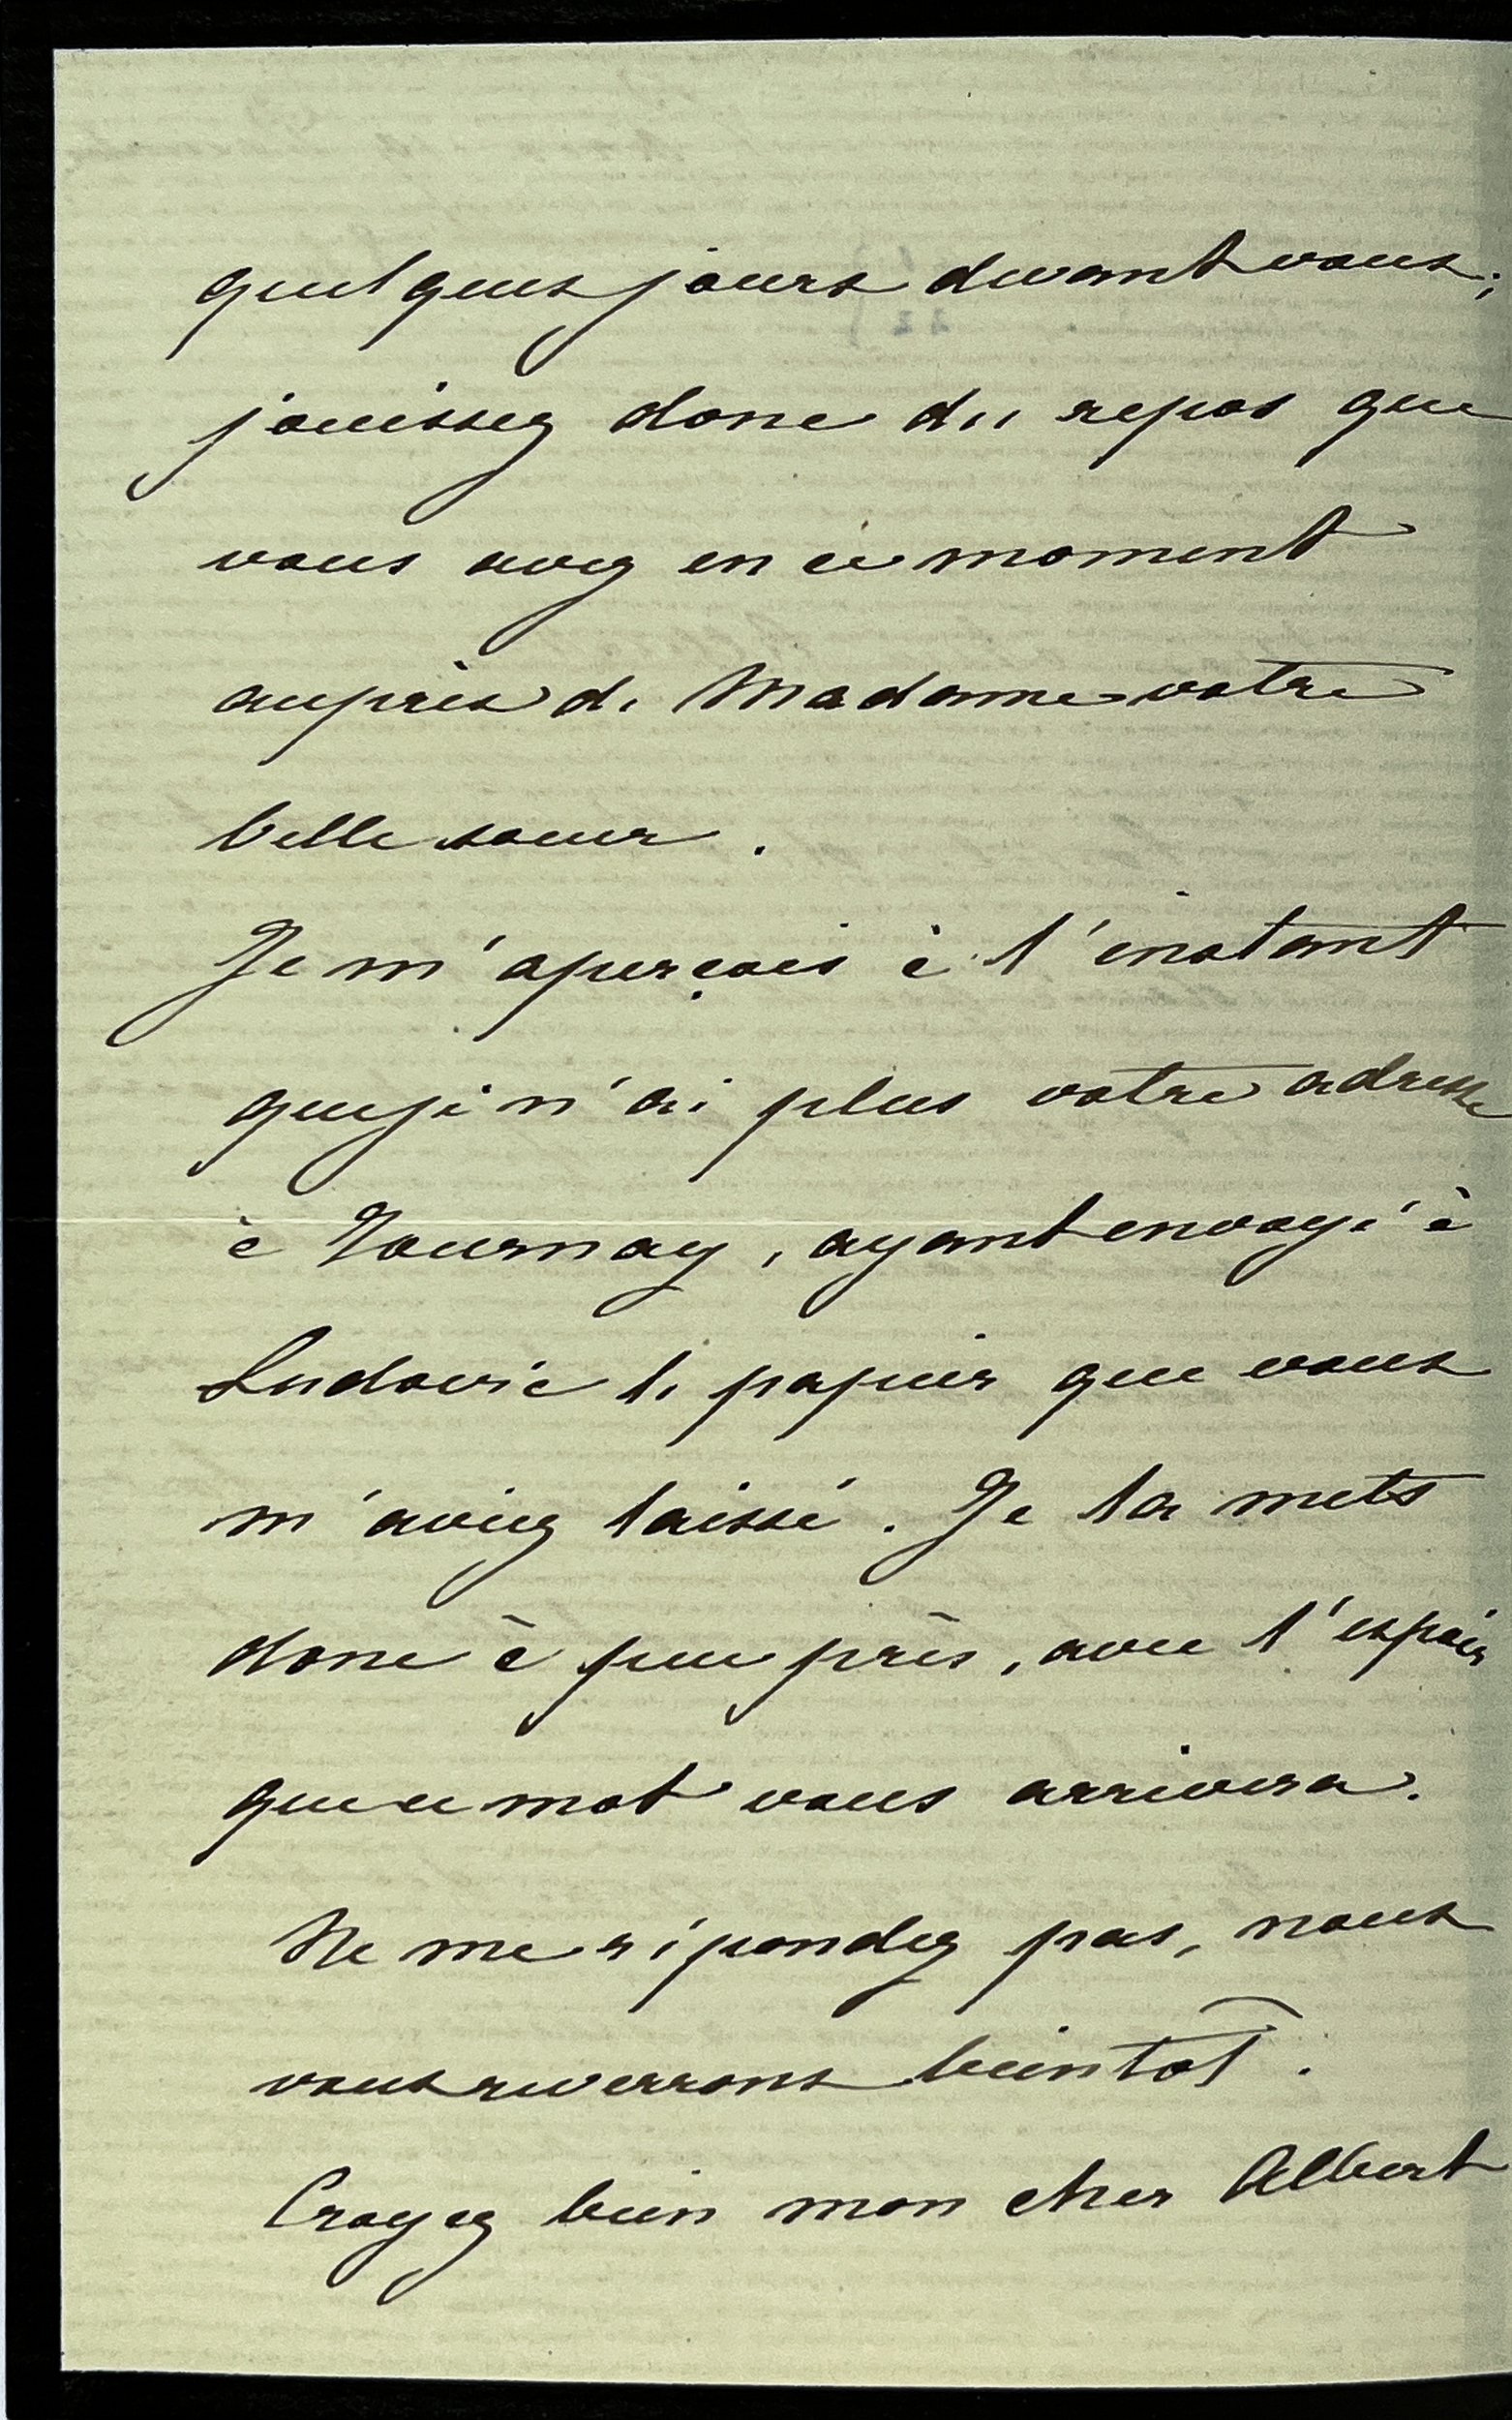 quelques jours devant vous;
jouissez donc du repos que
vous avez en ce moment
auprès de Madame votre
belle sœur.
Je m'aperçois à l'instant
que je n'ai plus votre adresse
à Tournay, ayant envoyé à
Ludovic le papier que vous
m'aviez laissé. Je la mets
donc à peu près, avec l'espoir
que ce mot vous arrivera.
Ne me répondez pas, nous
vous reverrons bientôt.
Croyez bien mon cher Albert